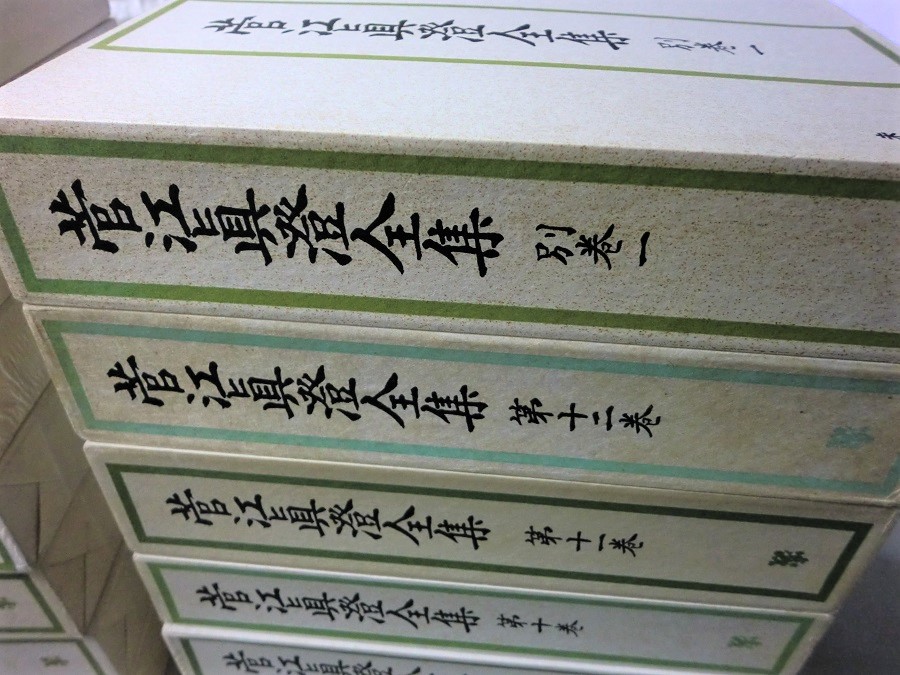 菅江眞澄全集 別巻一
菅江眞澄全集 別巻一
菅江眞澄全集 第十二巻
菅江眞澄全集 第十一巻
菅江眞澄全集 第十巻
菅江眞澄